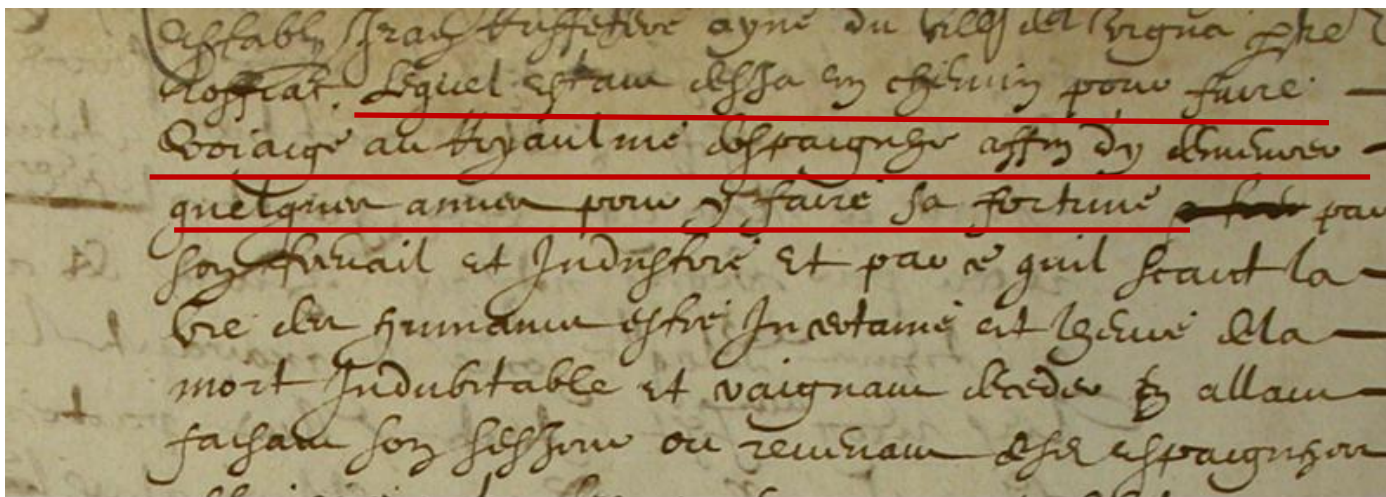 estably Jrach Ruffetere ayne du villaige del vigna pnt
Lequel estant dessa en chemin pour faire
voiaige au Royaulme despaigne affin dy demeurer
quelques annees pour y faire sa fortune par
son travail et Industrie et par ce quil scait la
vie des humains estre Incertaine et lheure de la
mort Indubitable et vaignant deceder en allant
faisant son sesjour ou revenant desd espaignes